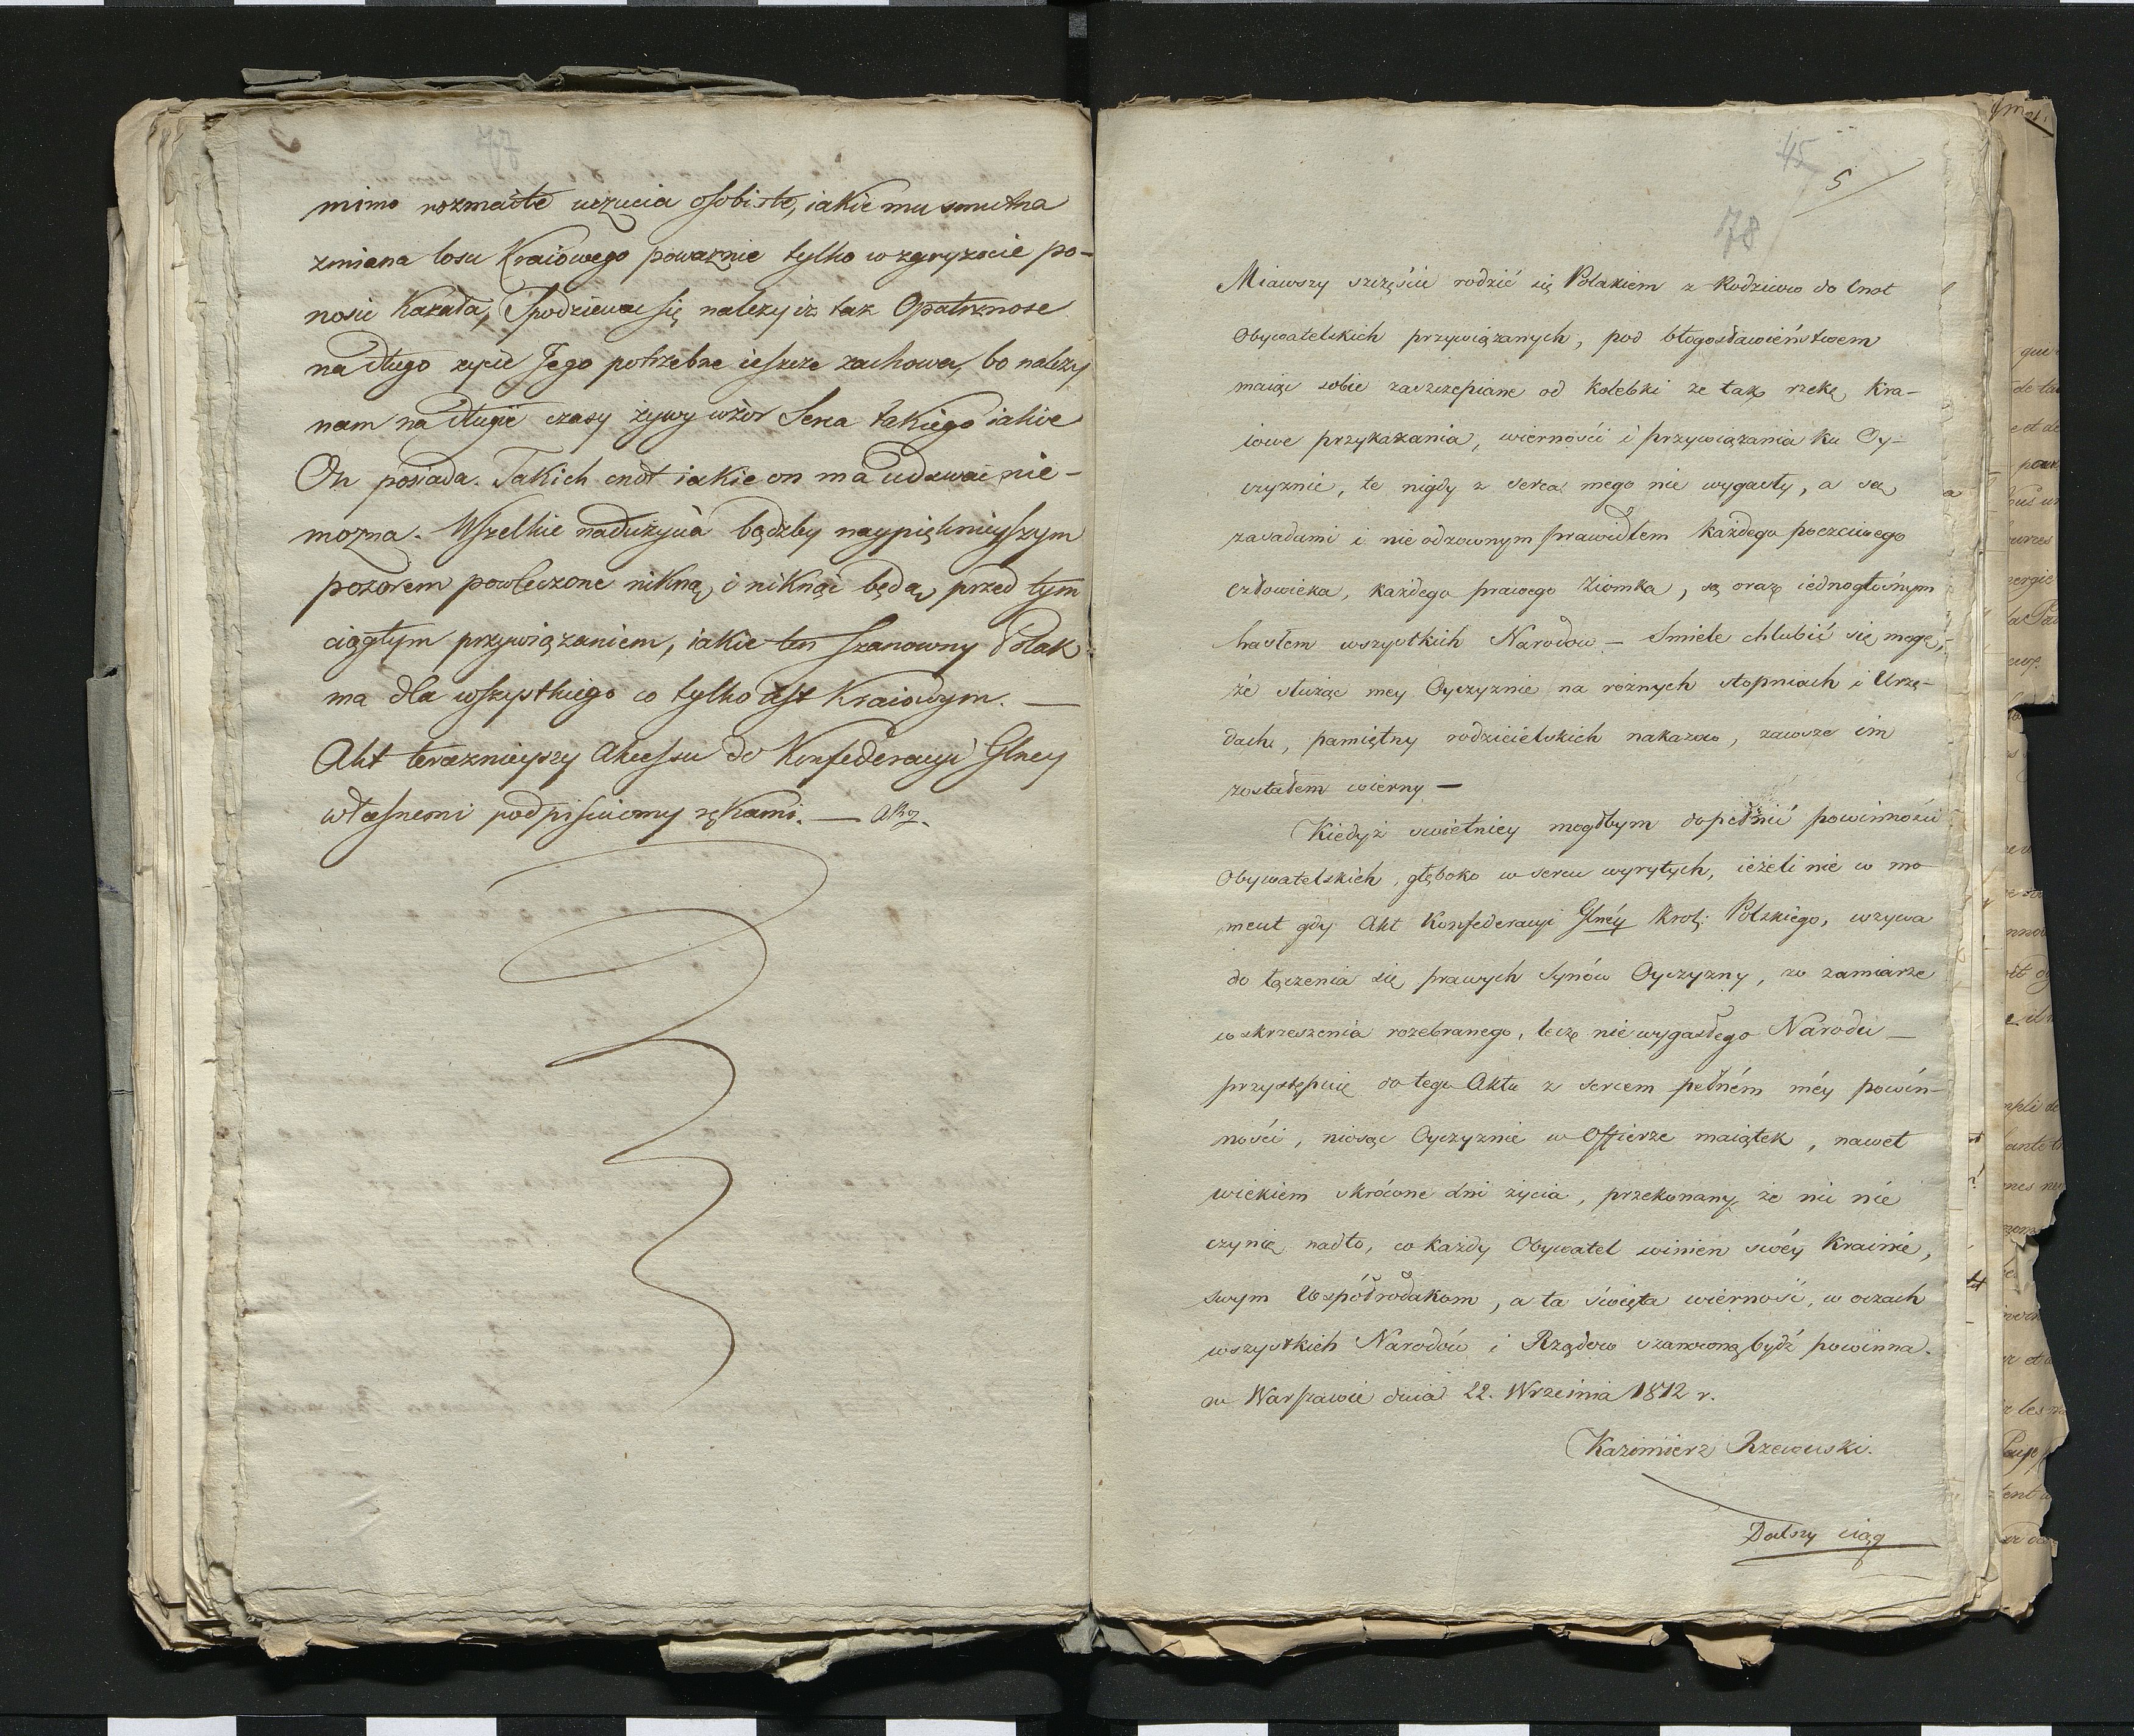 77
mimo rozmaite uczucia osobiste, iakie mu smutna
zmiana losu Kraiowego poważnie tylko w zgryzocie po-
nosic kazała, Spodziewac się należy iz tak Opatrznosc
na długo zycie Jego potrzebne ieszcze zachowa, bo należy
nam na długie czasy żywy wzor Serca takiego iakie
On posiada. Takich cnot iakie on ma udawać nie-
mozna. Wszelkie nadużycia bądźby naypięknieyszym
pozorem powleczone nikną, i niknąć będą, przed tym
ciągłym przywiązaniem, iakie ten szanowny Polak
ma dla wszystkiego co tylko iest Kraiowym. —
Akt teraznieyszy Akcessu do Konfederacyi Glney
własnemi podpisuiemy rękami. —
45
5
78
Miawszy szczęście rodzić się Polakiem z Rodzicow do Cnot
Obywatelskich przywiązanych, pod błogosławieństwem
maiąc sobie zaszczepiane od kolebki ze tak rzekę, Kra-
iowe przykazania, wierności i przywiązania ku Oy-
czyznie, te nigdy z serca mego nie wygasły, a są
zasadami i nieodzownym prawidłem każdego poczciwego
człowieka, każdego prawego Ziomka, są oraz iednogłośnym
hasłem wszystkich Narodow — Smiele chlubić się mogę,
że służąc mey Oyczyznie na rożnych stopniach i Urzę-
dach, pamiętny rodzicielskich nakazow, zawsze im
zostałem wierny —
Kiedyż swietniey mogłbym dopełnić powinności
Obywatelskich, głęboko w sercu wyrytych, ieżeli nie w mo
ment gdy Akt Konfederacyi Glnéy Krol: Polskiego, wzywa
do łączenia się prawych Synów Oyczyzny, w zamiarze
wskrzeszenia rozebranego, lecz nie wygasłego Narodu —
przystępuię do tego Aktu z sercem pełném méy powin-
ności, niosąc Oyczyznie w Offierze maiątek, nawet
wiekiem skrócone dni życia, przekonany, że nic nie
czynię nadto, co każdy Obywatel winien swéy Krainie,
swym Współrodakom, a ta święta wierność, w oczach
wszystkich Narodów i Rządow szanowną bydź powinna.
w Warszawie dnia 22. Września 1812 r.
Kazimierz Rzewuski.
Dalszy ciąg